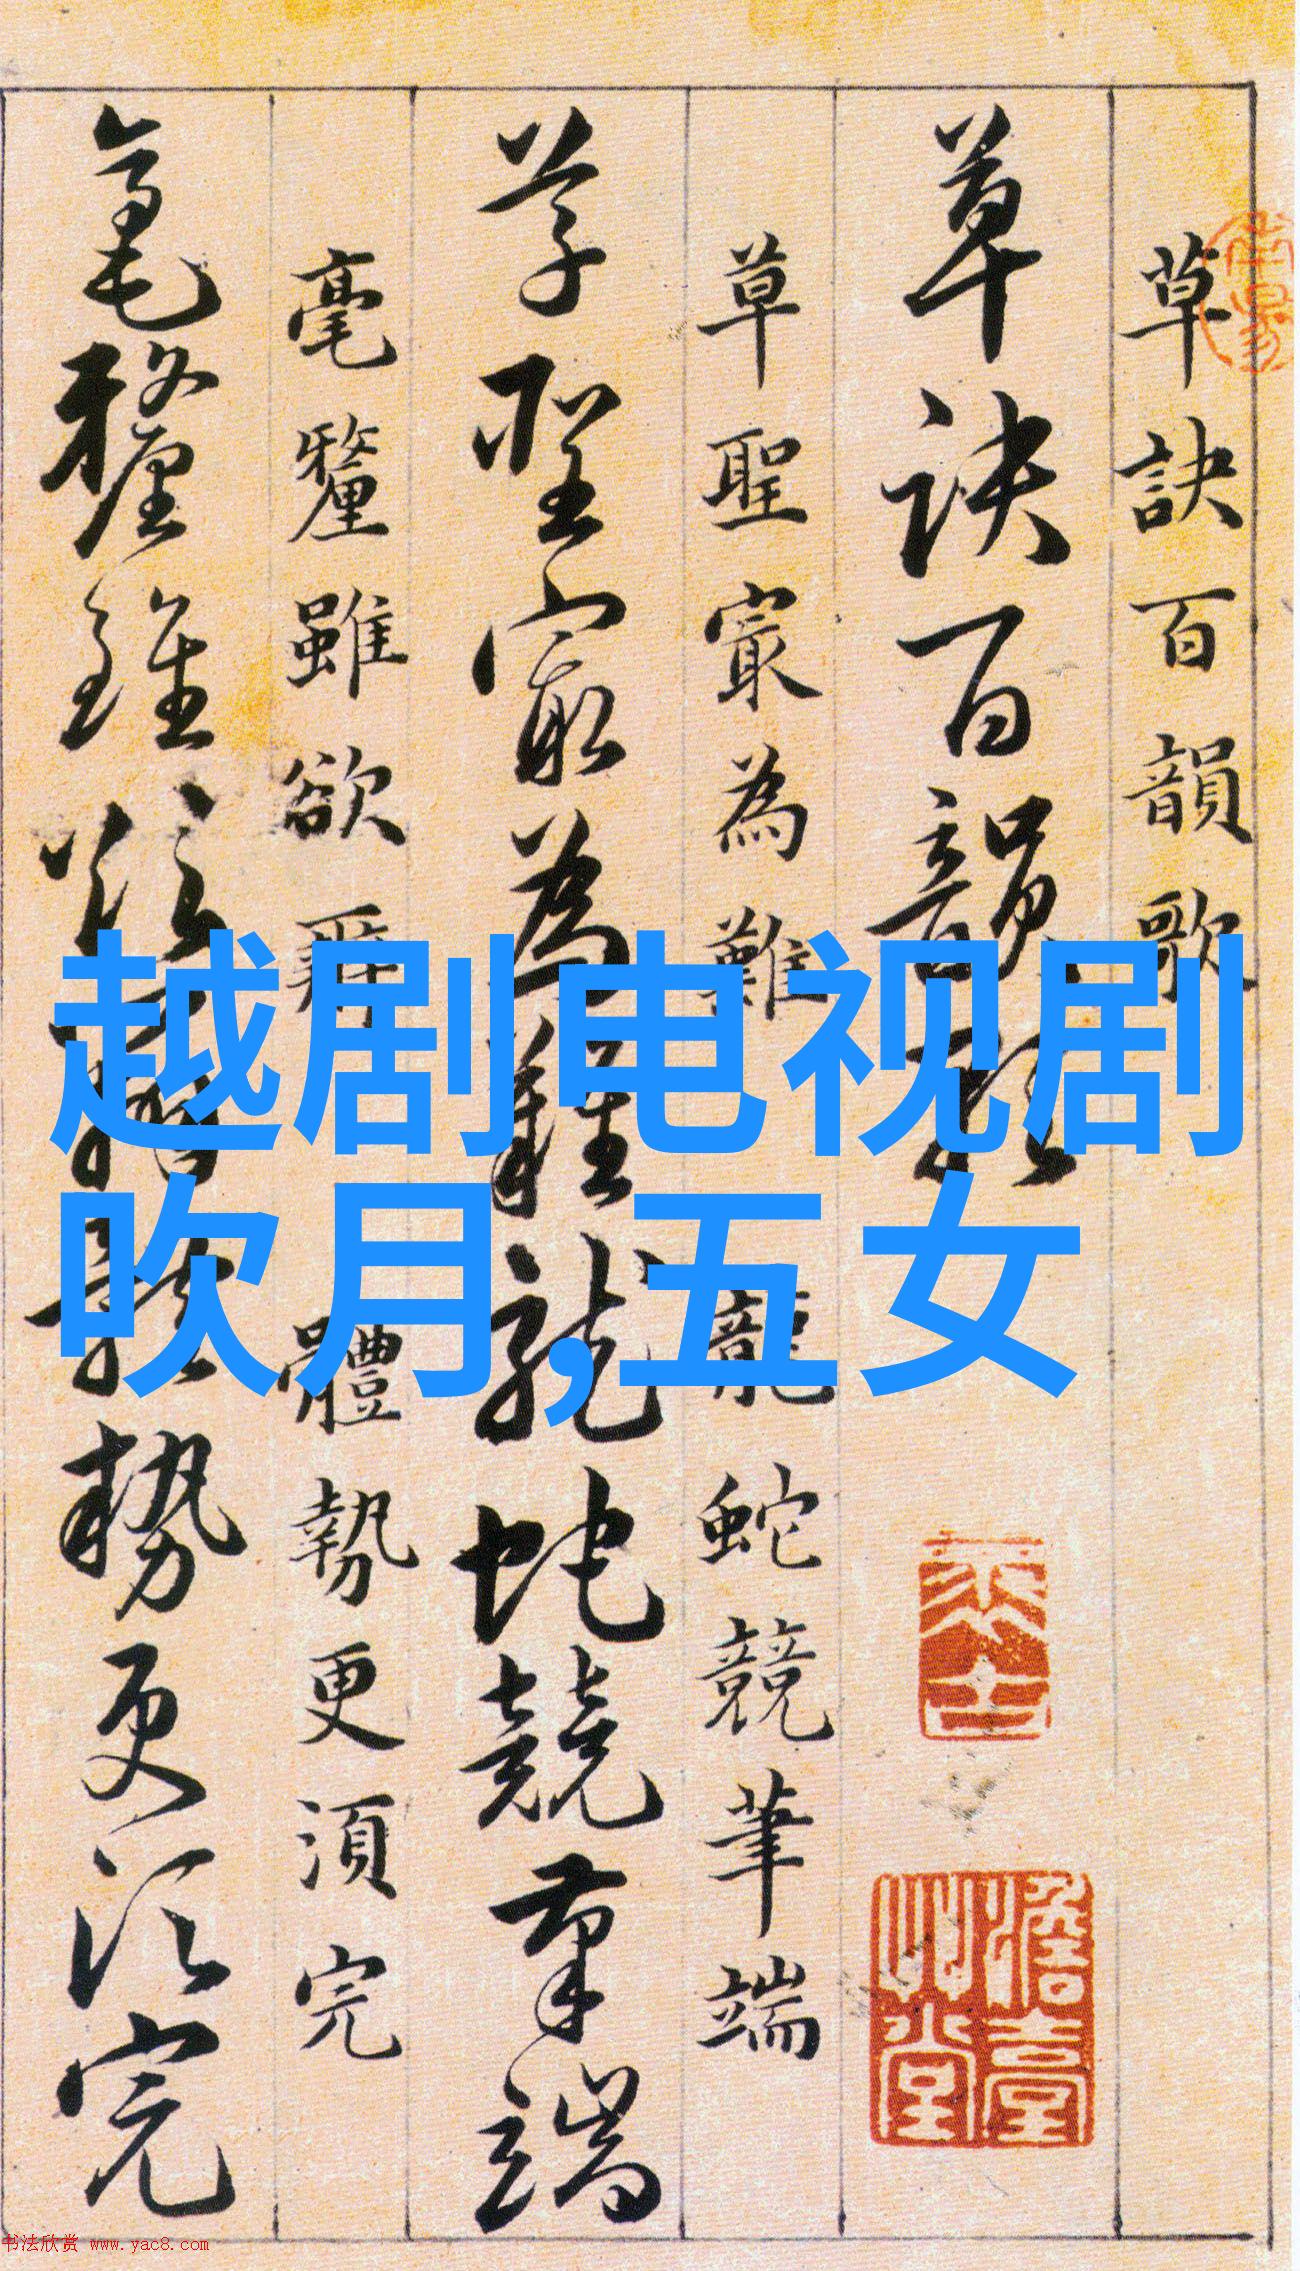 草訣百韻歌
草訣百韻歌
草聖寂為難龍蛇競筆端
草聖寂為難龍蛇競筆端
毫釐雖欲辭體勢更須完
毫釐雖欲辭體勢更須完
越剧电视剧
吹月,五女
书法欣赏 www.yac8.com